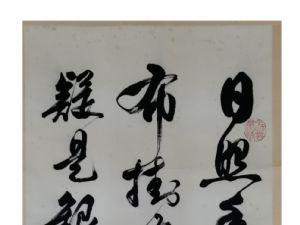 日照
布挂
疑是银